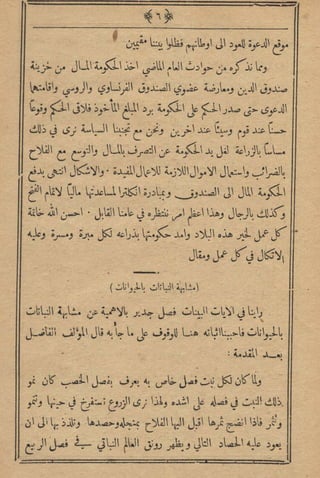 ﴿ ٦ ﴾
موقع الدعوة للعود الى اوطانهم فظلوا بيننا مقيمين
ومما نذكره من حوادث العام الماضي اخذ الحكومة المال من خزينة
صندوق الدين ومعارضة عضوي الصندوق الفرنساوي والروسي واقامتهما
الدعوى حتى صدر الحكم على الحكومة برد المبلغ المأخوذ فلاقى الحكم وقوعًا
حسنًا عند قوم وسيئًا عند اخرين ونحن مع تجنبنا السياسة نرى في ذلك
مساسًا بالزراعة لغل يد الحكومة عن التصرف بالمال والتوسع مع الفلاح
بالضرائب واستعمال الاموال اللازمة للاعمال المفيدة . والاشكال انتهى بدفع
الحكومة المال الى الصندوق وبمبادرة انكلترا لمساعدتها ماليًا لاتمام الفتح
وكذلك بالرجال وهذا اعظم امر ننتظره في عامنا القابل . احسن الله خاتمة
كل عمل لخير هذه البلاد وامد حكومتها بذراعه لكل مبرة ومسرة وعليه
الاتكال في كل عمل ومقال
( مشابهة النباتات بالحيوانات )
رأينا في الايات البينات فصل جدير بالاهمية عن مشابهة النباتات
بالحيوانات فاحببنا اثباته هنا للوقوف على ما جاء به قال المؤلف الفاضل
بعد المقدمة :
ولما كان لكل نبت فصل خاص به يعرف بفصل الخصب كان نمو
ذلك النبت في فصله على اشده ولهذا نرى الزروع تستفرخ في حينها وتنمو
وتثمر فاذا انضج ثمرها اقبل اليها الفلاح بمنجله وحصدها وتلذذ بها الى ان
يعود عليه الحصاد التالي ويظهر رونق العالم النباتي في فصل الربيع